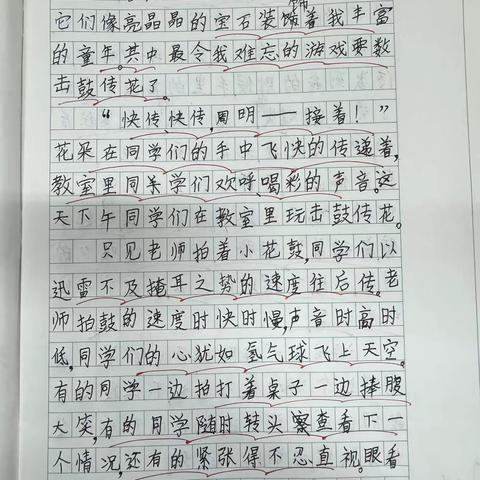 它们像亮晶晶的宝石装饰着我丰富
的童年。其中最令我难忘的游戏要数
击鼓传花了。
“快传、快传,周明——接着!”
花朵在同学们的手中飞快的传递着,
教室里同学们欢呼、喝彩的声音。这
天下午同学们在教室里玩击鼓传花。
只见老师拍着小花鼓,同学们以
迅雷不及掩耳之势的速度往后传。老
师拍鼓的速度时快时慢,声音时高时
低,同学们的心犹如氢气球飞上天空。
有的同学一边拍打着桌子一边捧腹
大笑,有的同学随时转头察查看下一
个情况,还有的紧张得不忍直视。眼看